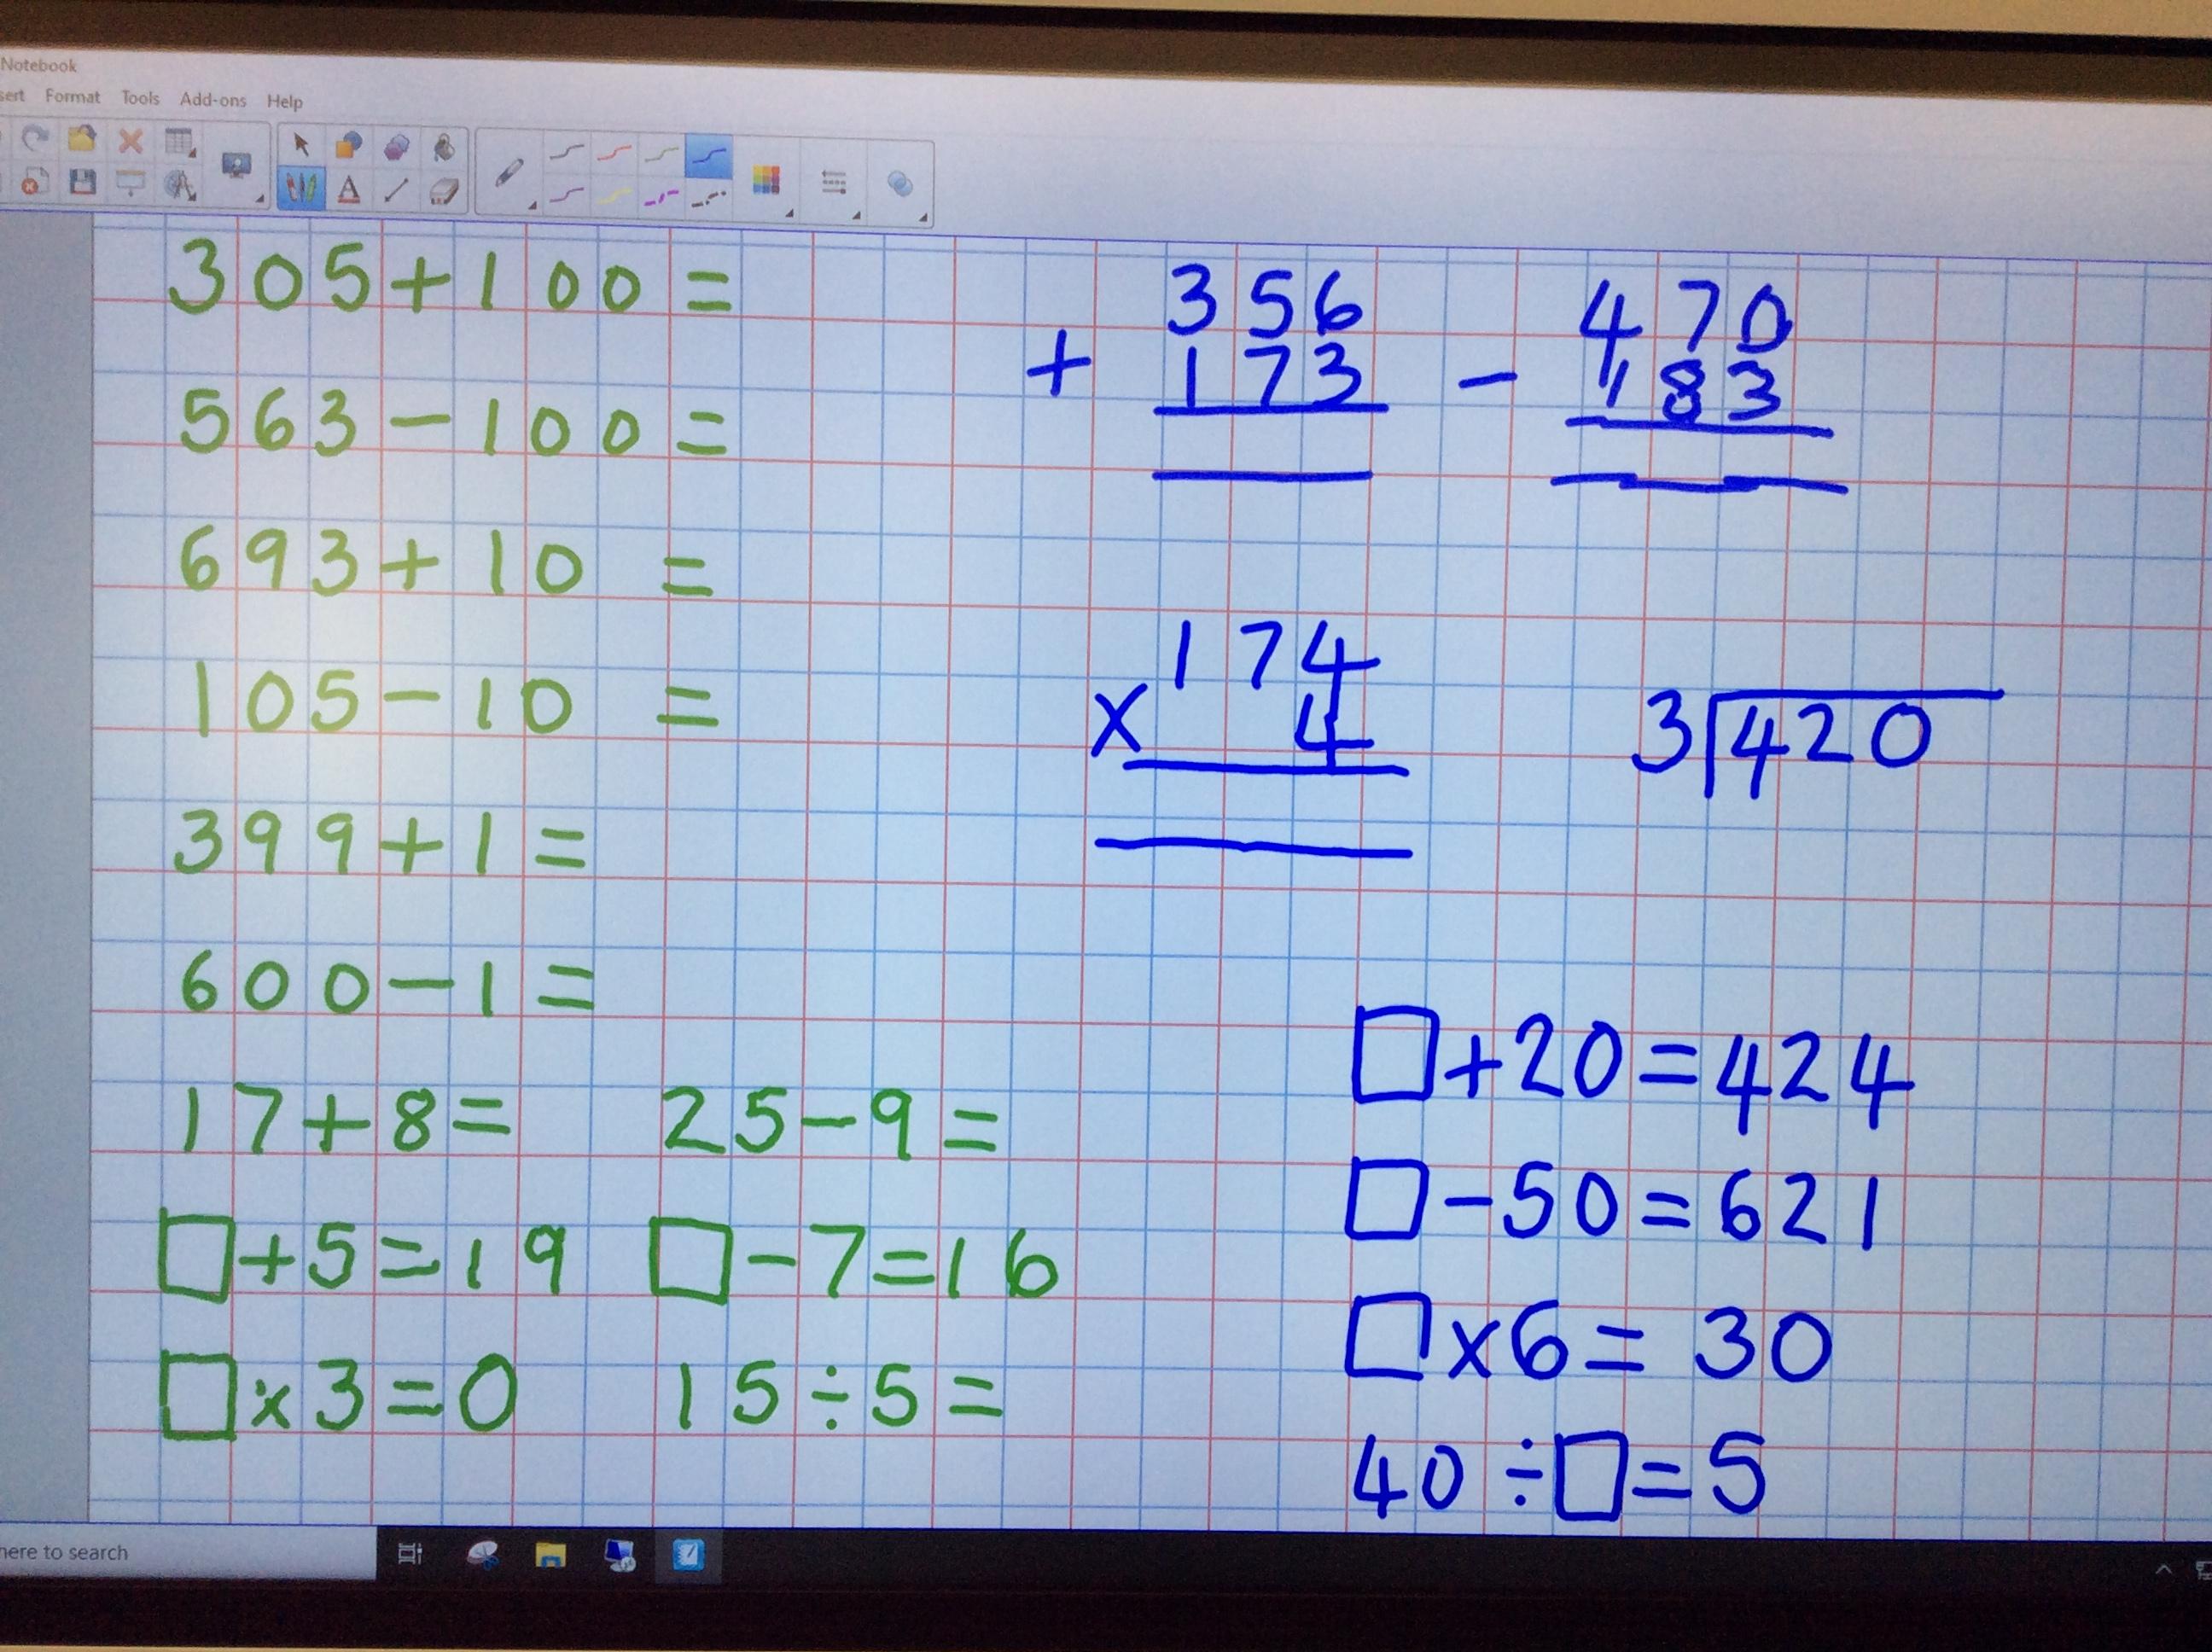 Notebook
sert Format Tools Add-ons Help
305+100=
563-100=
693+10 =
105-10 =
399+1=
600-1=
17+8= 25-9=
□+5=19 □-7=16
□×3=0 15÷5=
356
+ 173
470
- 183
174
× 4
3 420
□+20=424
□-50=621
□×6=30
40÷□=5
here to search